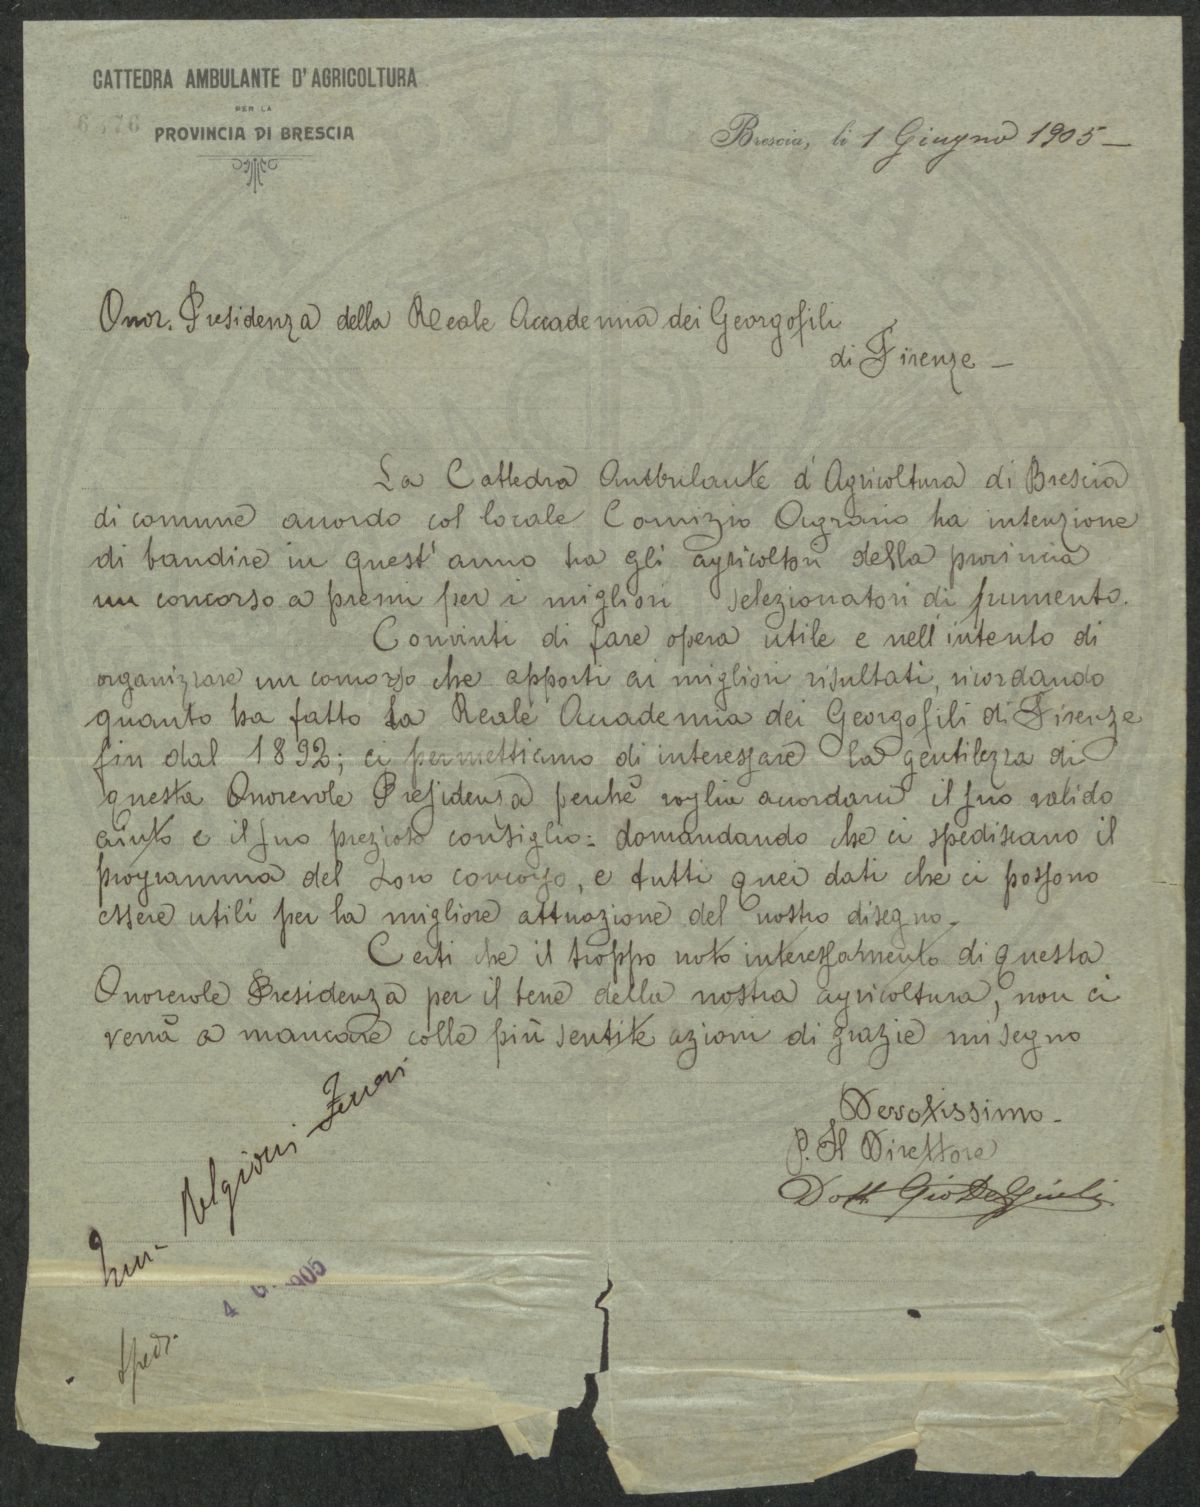 CATTEDRA AMBULANTE D'AGRICOLTURA
PER LA
PROVINCIA DI BRESCIA
Brescia, li 1 Giugno 1905 —
Onor. Presidenza della Reale Accademia dei Georgofili
di Firenze —
La Cattedra Ambulante d'Agricoltura di Brescia
di comune accordo col locale Comizio Agrario ha intenzione
di bandire in quest'anno tra gli agricoltori della provincia
un concorso a premi per i migliori selezionatori di frumento.
Convinti di fare opera utile e nell'intento di
organizzare un concorso che apporti ai migliori risultati, ricordando
quanto ha fatto la Reale Accademia dei Georgofili di Firenze
fin dal 1892; ci permettiamo di interessare la gentilezza di
questa Onorevole Presidenza perchè voglia accordarci il suo valido
aiuto e il suo prezioso consiglio: domandando che ci spediscano il
programma del Loro concorso, e tutti quei dati che ci possono
essere utili per la migliore attuazione del nostro disegno.
Certi che il troppo noto interessamento di questa
Onorevole Presidenza per il bene della nostra agricoltura, non ci
verrà a mancare colle più sentite azioni di grazie mi segno
Devotissimo.
P. Il Direttore
Dott. Gio
4 1905